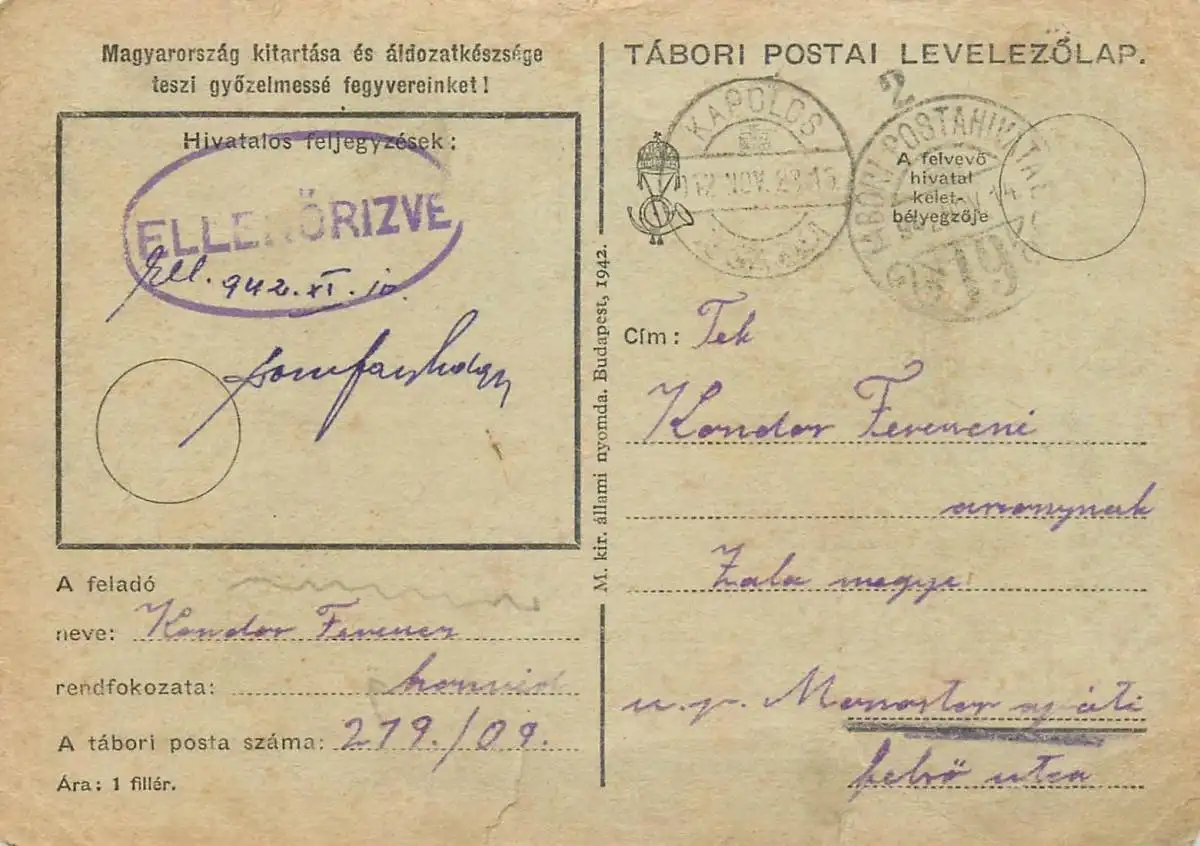 Magyarország kitartása és áldozatkészsége
teszi győzelmessé fegyvereinket!
Hivatalos feljegyzések:
ELLENŐRIZVE
Ell. 942. XI. 10.
A feladó
neve: Kondor Ferencz
rendfokozata: honvéd
A tábori posta száma: 219./09.
Ára: 1 fillér.
M. kir. állami nyomda. Budapest, 1942.
TÁBORI POSTAI LEVELEZŐLAP.
2
KAPOLCS
NOV. 23. 15
TÁBORI POSTAHIVATAL
219
A felvevő
hivatal
kelet-
bélyegzője
Cím: Tek
Kondor Ferencné
Zala megye
u. p. Monostor apáti
felső utca